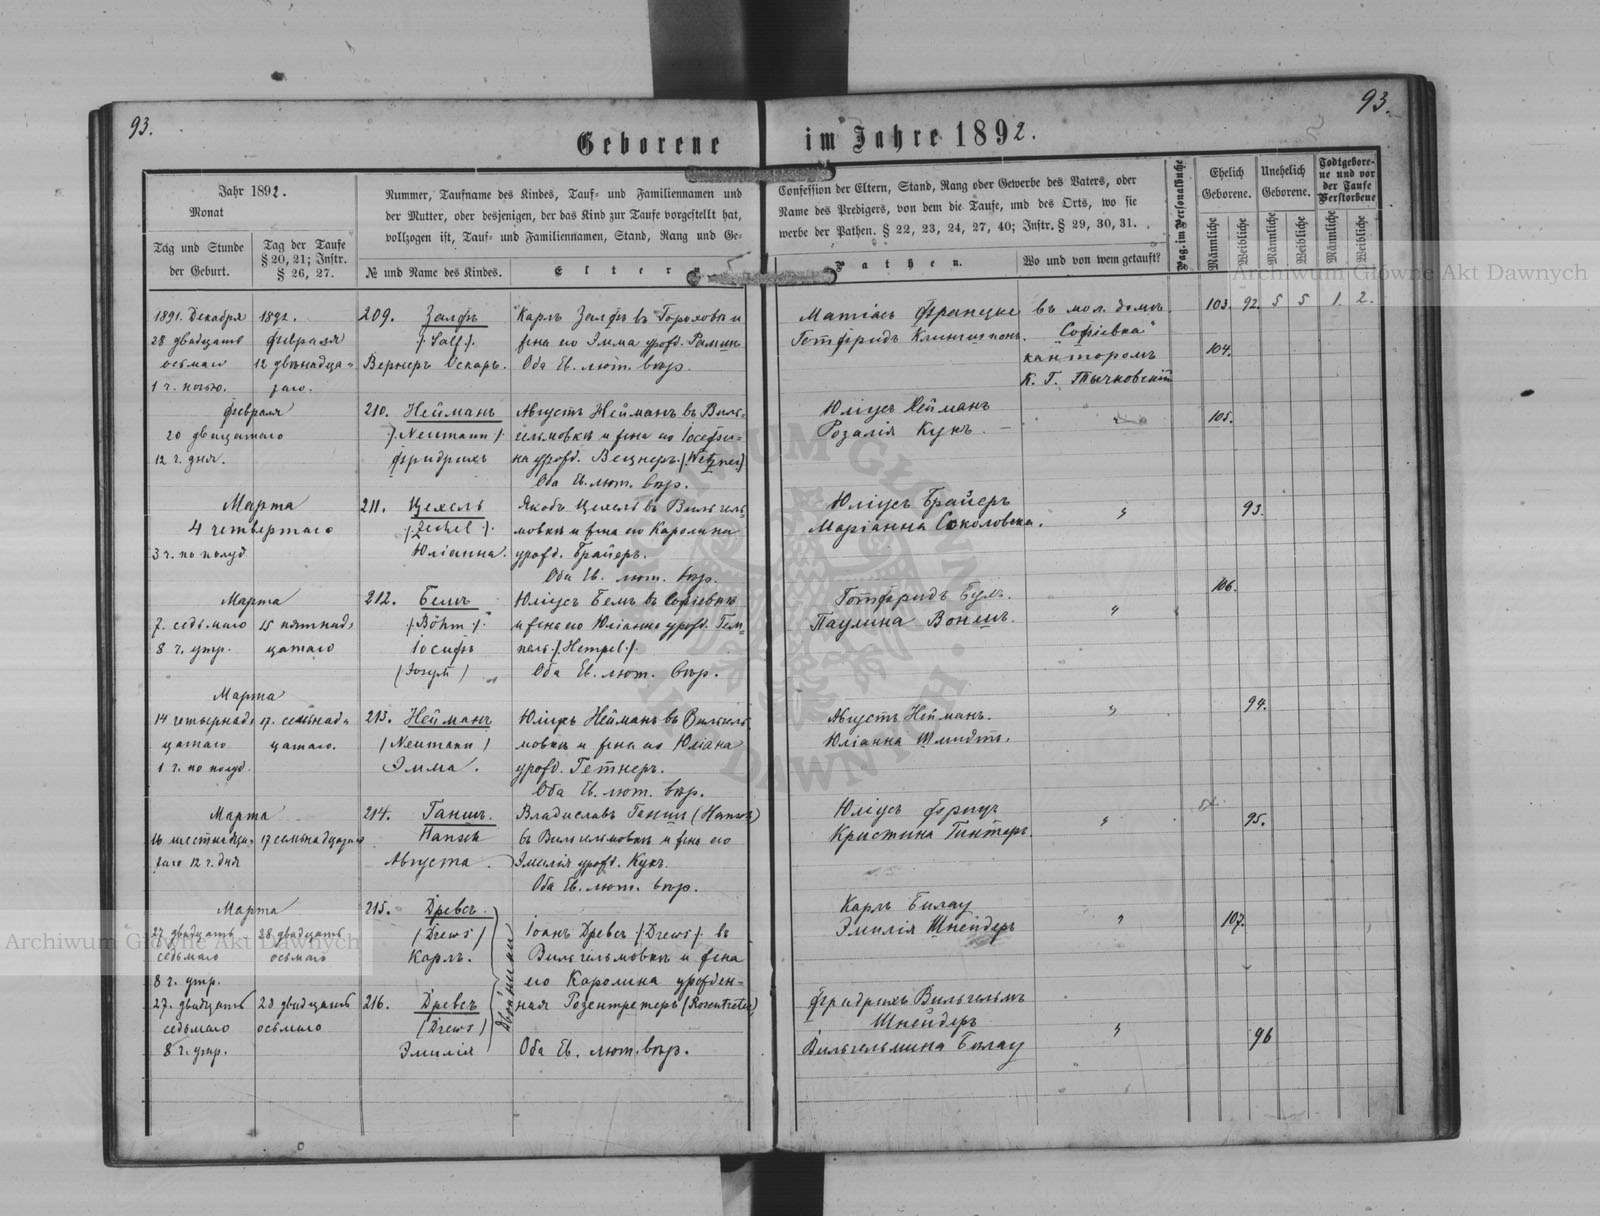 93.
93.
Geborene im Jahre 1892.
Jahr 1892.
Monat
Tag und Stunde
der Geburt.
Tag der Taufe
§ 20, 21; Instr.
§ 26, 27.
Nummer, Taufname des Kindes, Tauf- und Familiennamen und
der Mutter, oder desjenigen, der das Kind zur Taufe vorgestellt hat,
vollzogen ist, Tauf- und Familiennamen, Stand, Rang und Ge-
№ und Name des Kindes.
Eltern
Confession der Eltern, Stand, Rang oder Gewerbe des Vaters, oder
Name des Predigers, von dem die Taufe, und des Orts, wo sie
werbe der Pathen. § 22, 23, 24, 27, 40; Instr. § 29, 30, 31.
Pathen.
Wo und von wem getauft?
Pag. im Personalbuche
Ehelich
Geborene.
Unehelich
Geborene.
Todtgebore-
ne und vor
der Taufe
Verstorbene
Männliche
Weibliche
Männliche
Weibliche
Männliche
Weibliche
1891. Декабря
28 двадцать
осьмаго
1 ч. ночью.
1892.
Февраля
12 двѣнадца-
таго.
209. Залфъ
/: Salf :/
Вернеръ Оскаръ.
Карлъ Залфъ въ Гороховы и
жена его Эмма урожд.
Оба Ев. лют. вѣр.
Матiасъ
Готфридъ
въ мол. домѣ
"Софiевка"
канторомъ
К. Г. Тычковскiй
103. 92. 5 5 1. 2.
104.
Февраля
20 двадцатаго
12 ч. дня.
210. Нейманъ
/: Neumann :/
Фридрихъ
Августъ Нейманъ въ Виль-
гельмовкѣ и жена его Iосефи-
на урожд. Вецнеръ. (Wetzner)
Оба Ев. лют. вѣр.
Юлiусъ Нейманъ
Розалiя Кукъ.
105.
Марта
4 четвертаго
3 ч. по полуд.
211. Цехель
/: Zechel :/
Юлiанна.
Якобъ Цехель въ Вильгель-
мовкѣ и жена его Каролина
урожд. Брайеръ.
Оба Ев. лют. вѣр.
Юлiусъ Брайеръ
Марiанна Соколовска.
"
93.
Марта
7. седьмаго
8 ч. утр.
15 пятнад-
цатаго
212. Бемъ
/: Böhm :/
Iосифъ
(Joseph)
Юлiусъ Бемъ въ Софiевкѣ
и жена его Юлiанна урожд. Гем-
пель /: Hempel :/
Оба Ев. лют. вѣр.
Готфридъ Бумъ.
Паулина Воншъ.
"
106.
Марта
14 четырнад-
цатаго
1 ч. по полуд.
17. семьнад-
цатаго.
213. Нейманъ
/ Neumann /
Эмма.
Юлiусъ Нейманъ въ Вильгель-
мовкѣ и жена его Юлiана
урожд. Гетнеръ.
Оба Ев. лют. вѣр.
Августъ Нейманъ.
Юлiанна Шмидтъ.
"
94.
Марта
16 шестнадца-
таго 12 ч. дня
17 семьнадцатаго
214. Ганшъ.
Августа.
Владиславъ Ганшъ
въ Вильгельмовкѣ и жена его
Эмилiя урожд. Кукъ.
Оба Ев. лют. вѣр.
Юлiусъ Фрицъ
Кристина Гинтеръ
"
95.
Марта
27 двадцать
седьмаго
8 ч. утр.
28 двадцать
осьмаго
215. Древсъ.
(Drews)
Карлъ.
Двойники
Iоанъ Древсъ /: Drews :/ въ
Вильгельмовкѣ и жена
его Каролина урожден-
ная Розентретеръ (Rosentreter)
Карлъ Билау
Эмилiя Шнейдеръ
"
107.
27. двадцать
седьмаго
8 ч. утр.
28 двадцать
осьмаго
216. Древсъ
(Drews)
Эмилiя
Оба Ев. лют. вѣр.
Фридрихъ Вильгельмъ
Шнейдеръ
Вильгельмина Билау
"
96
Archiwum Główne Akt Dawnych
Archiwum Główne Akt Dawnych